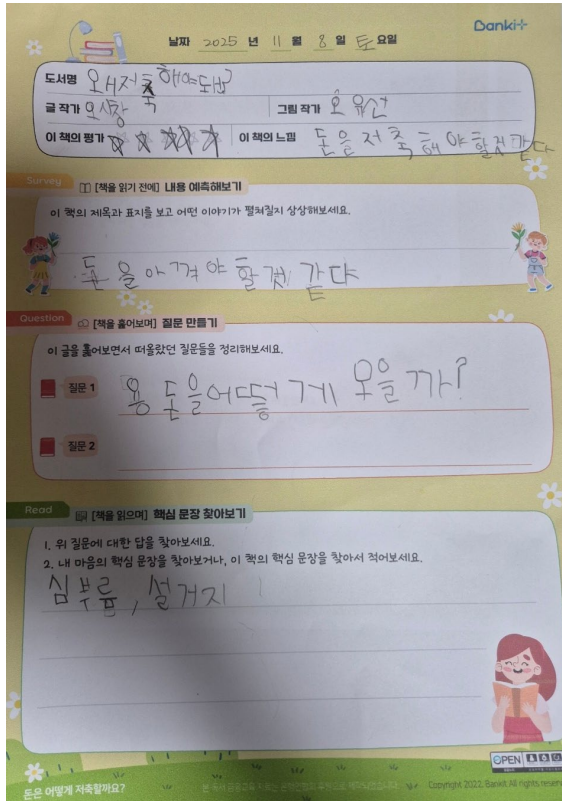 Banki+
날짜 2025 년 11 월 8 일 토 요일
도서명 왜저축해야돼?
글 작가 오시창 그림 작가 오유선
이 책의 평가 ☆☆☆☆☆ 이 책의 느낌 돈을 저축해야할것 같다
Survey [책을 읽기 전에] 내용 예측해보기
이 책의 제목과 표지를 보고 어떤 이야기가 펼쳐질지 상상해보세요.
돈을아껴야할겄같다
Question [책을 훑어보며] 질문 만들기
이 글을 훑어보면서 떠올랐던 질문들을 정리해보세요.
질문 1 용돈을어떻게 모을까?
질문 2
Read [책을 읽으며] 핵심 문장 찾아보기
1. 위 질문에 대한 답을 찾아보세요.
2. 내 마음의 핵심 문장을 찾아보거나, 이 책의 핵심 문장을 찾아서 적어보세요.
심부름, 설거지
OPEN
돈은 어떻게 저축할까요?
Copyright 2022. Bankit All rights reser